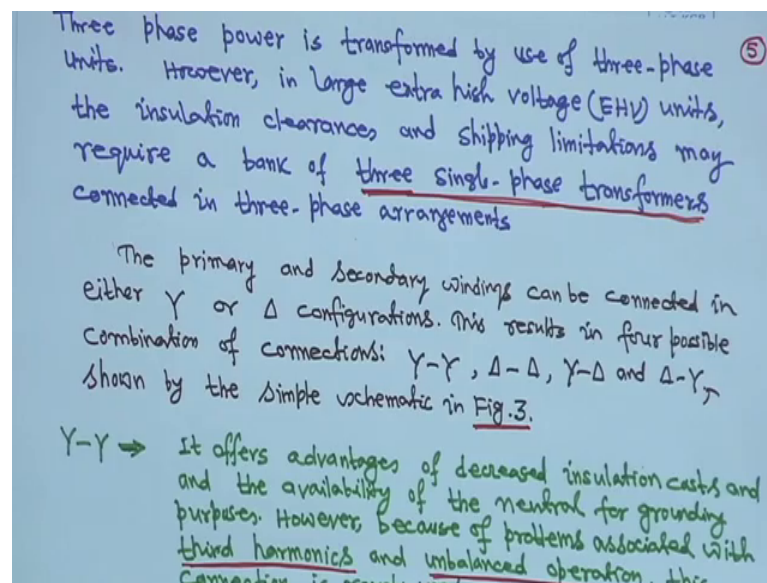 Three phase power is transformed by use of three-phase
units. However, in large extra high voltage (EHV) units,
the insulation clearances and shipping limitations may
require a bank of three single-phase transformers
connected in three-phase arrangements
5
The primary and secondary windings can be connected in
either Y or Δ configurations. This results in four possible
combination of connections: Y-Y, Δ-Δ, Y-Δ and Δ-Y,
shown by the simple schematic in Fig.3.
Y-Y → It offers advantages of decreased insulation costs and
and the availability of the neutral for grounding
purpuses. However, because of problems associated with
third harmonics and unbalanced operation, this
connection is